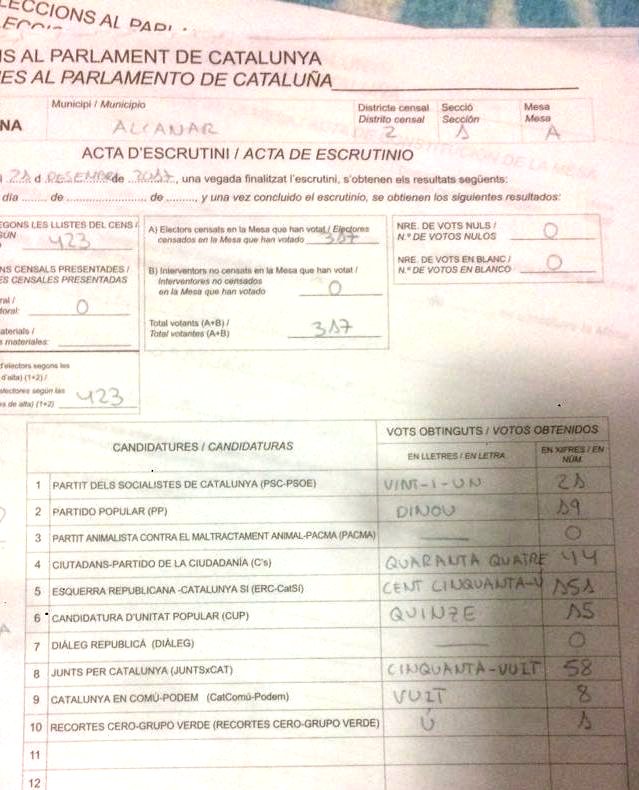 LECCIONS AL PARL
IS AL PARLAMENT DE CATALUNYA
ES AL PARLAMENTO DE CATALUÑA
Municipi / Municipio
Districte censal
Distrito censal
Secció
Sección
Mesa
Mesa
NA
ALCANAR
2
1
A
ACTA D'ESCRUTINI / ACTA DE ESCRUTINIO
21 d DESEMBRE de 2017, una vegada finalitzat l'escrutini, s'obtenen els resultats següents:
día ........ de .................... de ........., y una vez concluido el escrutinio, se obtienen los siguientes resultados:
EGONS LES LLISTES DEL CENS /
423
NS CENSALS PRESENTADES /
ES CENSALES PRESENTADAS
ral /
toral:
0
aterials /
s materiales:
d'electors segons les
d'alta) (1+2) /
electores según las
s de alta) (1+2)
423
A) Electors censats en la Mesa que han votat / Electores
censados en la Mesa que han votado
317
B) Interventors no censats en la Mesa que han votat /
Interventores no censados
en la Mesa que han votado
0
Total votants (A+B) /
Total votantes (A+B)
317
NRE. DE VOTS NULS /
N.º DE VOTOS NULOS
0
NRE. DE VOTS EN BLANC /
N.º DE VOTOS EN BLANCO
0
CANDIDATURES / CANDIDATURAS
VOTS OBTINGUTS / VOTOS OBTENIDOS
EN LLETRES / EN LETRA
EN XIFRES / EN
NÚM.
1 PARTIT DELS SOCIALISTES DE CATALUNYA (PSC-PSOE) VINT-I-UN 21
2 PARTIDO POPULAR (PP) DINOU 19
3 PARTIT ANIMALISTA CONTRA EL MALTRACTAMENT ANIMAL-PACMA (PACMA) 0
4 CIUTADANS-PARTIDO DE LA CIUDADANÍA (C's) QUARANTA QUATRE 44
5 ESQUERRA REPUBLICANA -CATALUNYA SI (ERC-CatSí) CENT CINQUANTA-U 151
6 CANDIDATURA D'UNITAT POPULAR (CUP) QUINZE 15
7 DIÀLEG REPUBLICÀ (DIÀLEG) 0
8 JUNTS PER CATALUNYA (JUNTSxCAT) CINQUANTA-VUIT 58
9 CATALUNYA EN COMÚ-PODEM (CatComú-Podem) VUIT 8
10 RECORTES CERO-GRUPO VERDE (RECORTES CERO-GRUPO VERDE) Ú 1
11
12